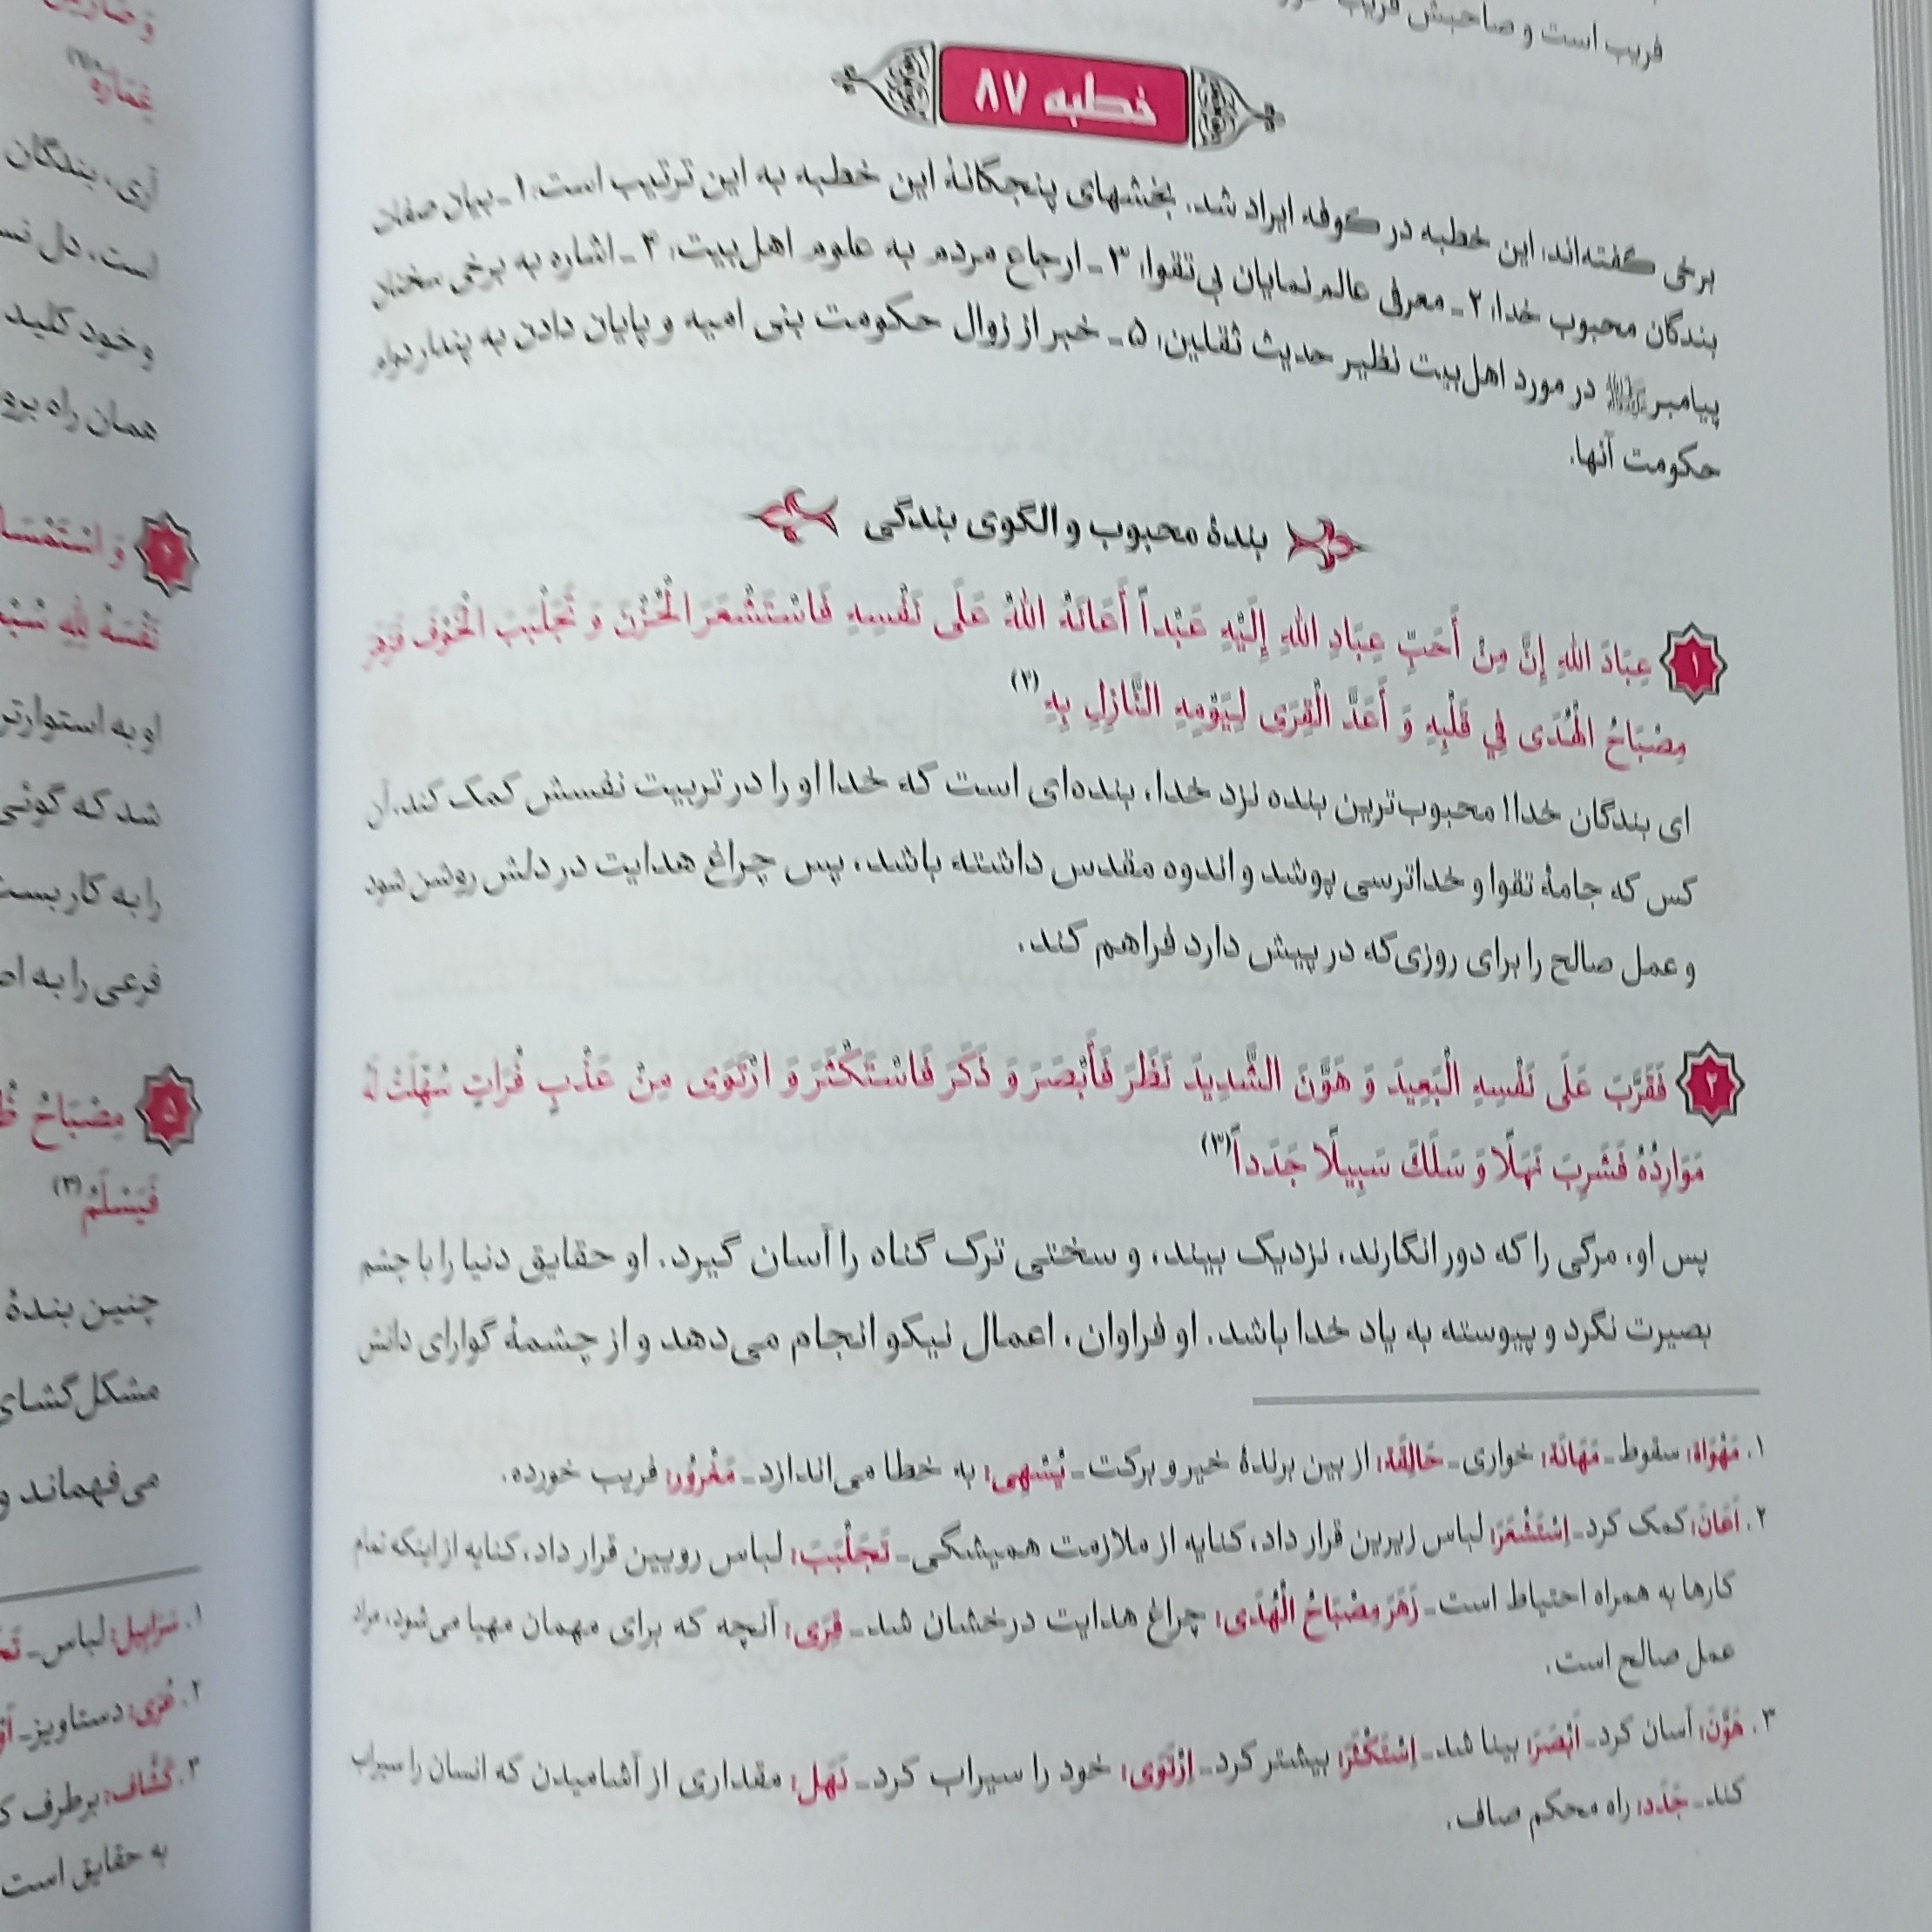 فریب است و صاحبش فریب
خطبه ۸۷
برخی گفته‌اند، این خطبه در کوفه ایراد شد. بخشهای پنجگانهٔ این خطبه به این ترتیب است، ۱ـ بیان صفات
بندگان محبوب خدا، ۲ـ معرفی عالم‌نمایان بی‌تقوا، ۳ـ ارجاع مردم به علوم اهل‌بیت، ۴ـ اشاره به برخی سخنان
پیامبرﷺ در مورد اهل‌بیت نظیر حدیث ثقلین، ۵ـ خبر از زوال حکومت بنی امیه و پایان دادن به پندار دوام
حکومت آنها.
بندهٔ محبوب و الگوی بندگی
۱ عِبَادَ اللهِ إِنَّ مِنْ أَحَبِّ عِبَادِ اللهِ إِلَيْهِ عَبْداً أَعَانَهُ اللهُ عَلَى نَفْسِهِ فَاسْتَشْعَرَ الْحُزْنَ وَ تَجَلْبَبَ الْخَوْفَ فَزَهَرَ
مِصْبَاحُ الْهُدَى فِي قَلْبِهِ وَ أَعَدَّ الْقِرَى لِيَوْمِهِ النَّازِلِ بِهِ(۲)
ای بندگان خدا! محبوب‌ترین بنده نزد خدا، بنده‌ای است که خدا او را در تربیت نفسش کمک کند. آن
کس که جامهٔ تقوا و خداترسی پوشد و اندوه مقدس داشته باشد، پس چراغ هدایت در دلش روشن شود
و عمل صالح را برای روزی‌که در پیش دارد فراهم کند.
۲ فَقَرَّبَ عَلَى نَفْسِهِ الْبَعِيدَ وَ هَوَّنَ الشَّدِيدَ نَظَرَ فَأَبْصَرَ وَ ذَكَرَ فَاسْتَكْثَرَ وَ ارْتَوَى مِنْ عَذْبٍ فُرَاتٍ سُهِّلَتْ لَهُ
مَوَارِدُهُ فَشَرِبَ نَهَلًا وَ سَلَكَ سَبِيلًا جَدَداً(۳)
پس او، مرگی را که دور انگارند، نزدیک بیند، و سختی ترک گناه را آسان گیرد. او حقایق دنیا را با چشم
بصیرت نگرد و پیوسته به یاد خدا باشد. او فراوان، اعمال نیکو انجام می‌دهد و از چشمهٔ گوارای دانش
۱. مَهْوَاة: سقوط ـ مَهَانَة: خواری ـ حَالِقَة: از بین برندهٔ خیر و برکت ـ یُسْهِی: به خطا می‌اندازد ـ مَغْرُور: فریب خورده.
۲. أَعَانَ: کمک کرد ـ اِسْتَشْعَرَ: لباس زیرین قرار داد، کنایه از ملازمت همیشگی ـ تَجَلْبَبَ: لباس رویین قرار داد، کنایه از اینکه تمام
کارها به همراه احتیاط است ـ زَهَرَ مِصْبَاحُ الْهُدَى: چراغ هدایت درخشان شد ـ قِرَی: آنچه که برای مهمان مهیا می‌شود، مراد
عمل صالح است.
۳. هَوَّنَ: آسان کرد ـ أَبْصَرَ: بینا شد ـ اِسْتَکْثَرَ: بیشتر کرد ـ اِرْتَوَی: خود را سیراب کرد ـ نَهَل: مقداری از آشامیدن که انسان را سیراب
کند ـ جَدَد: راه محکم صاف.
آری، بندگان
است، دل
و خود کلید
همان راه
۴
نَفْسَهُ لِلهِ
او به استوارتر
شد که گوئی
را به کار بست
فرعی را به
۵ مِصْبَاحُ
فَيَسْلَمُ(۳)
چنین بندهٔ
مشکل‌گشای
می‌فهماند و
۱. سَرَابِیل: لباس ـ
۲. عُرَی: دستاویز ـ
۳. کَشَّاف: برطرف
به حقایق است